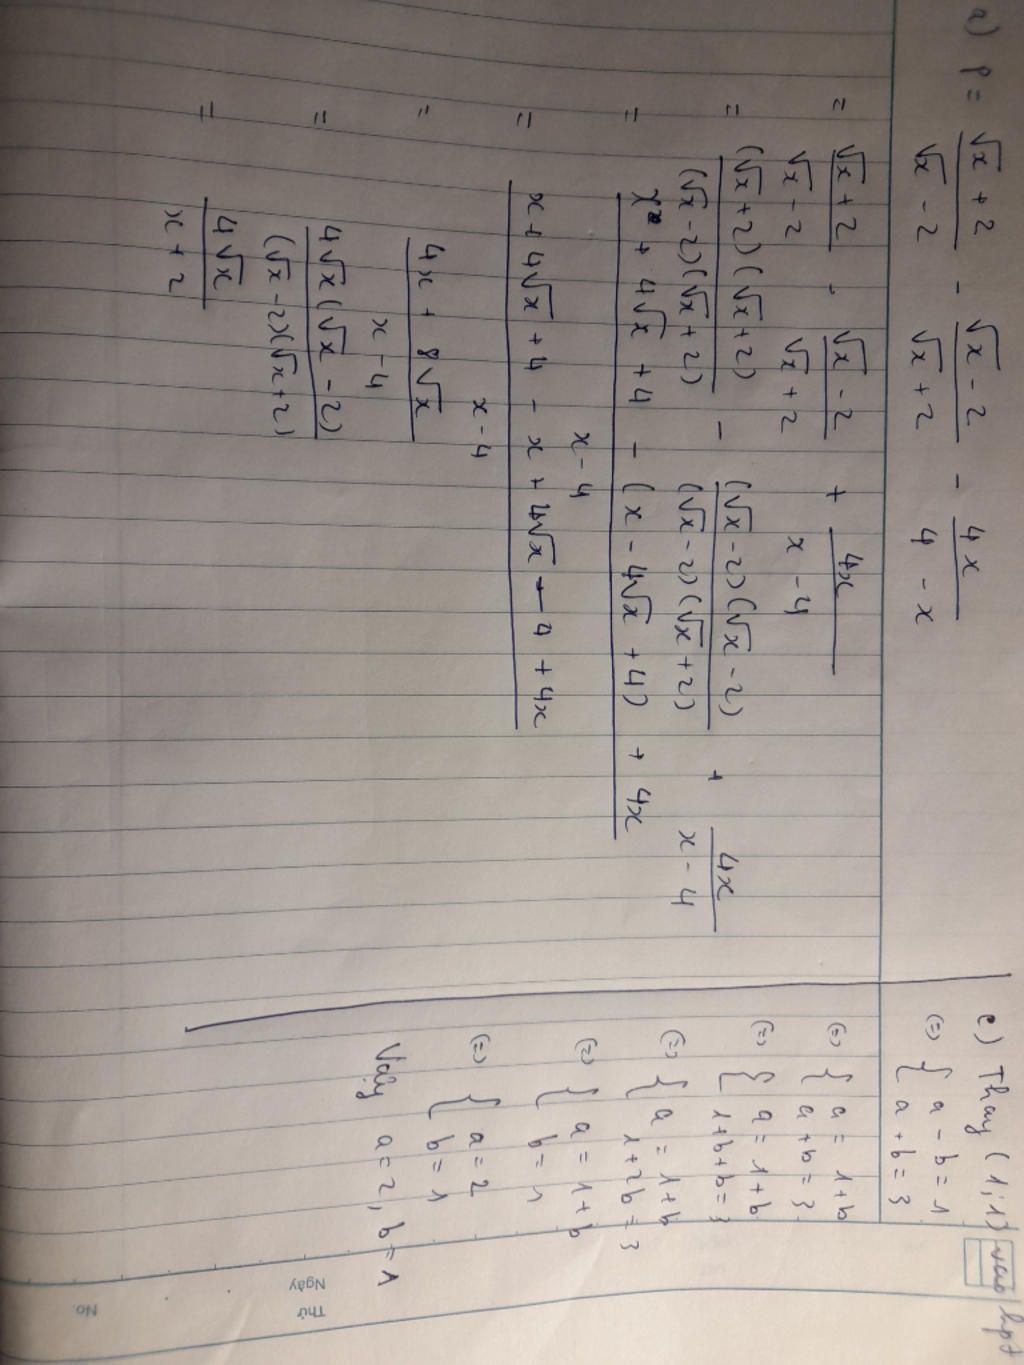 a) P = (√x + 2)/(√x - 2) - (√x - 2)/(√x + 2) - 4x/(4 - x)
= (√x + 2)/(√x - 2) - (√x - 2)/(√x + 2) + 4x/(x - 4)
= (√x + 2)(√x + 2)/(√x - 2)(√x + 2) - (√x - 2)(√x - 2)/(√x - 2)(√x + 2) + 4x/(x - 4)
= x + 4√x + 4 - (x - 4√x + 4) + 4x / x - 4
= x + 4√x + 4 - x + 4√x - 4 + 4x / x - 4
= 4x + 8√x / x - 4
= 4√x(√x - 2) / (√x - 2)(√x + 2)
= 4√x / x + 2
c) Thay (1;1) vào hpt
(=) { a - b = 1
a + b = 3
(=) { a = 1+b
a + b = 3
(=) { a = 1+b
1+b+b = 3
(=) { a = 1+b
1+2b = 3
(=) { a = 1+b
b = 1
(=) { a = 2
b = 1
Vậy a = 2, b = 1
Thứ
Ngày
No.